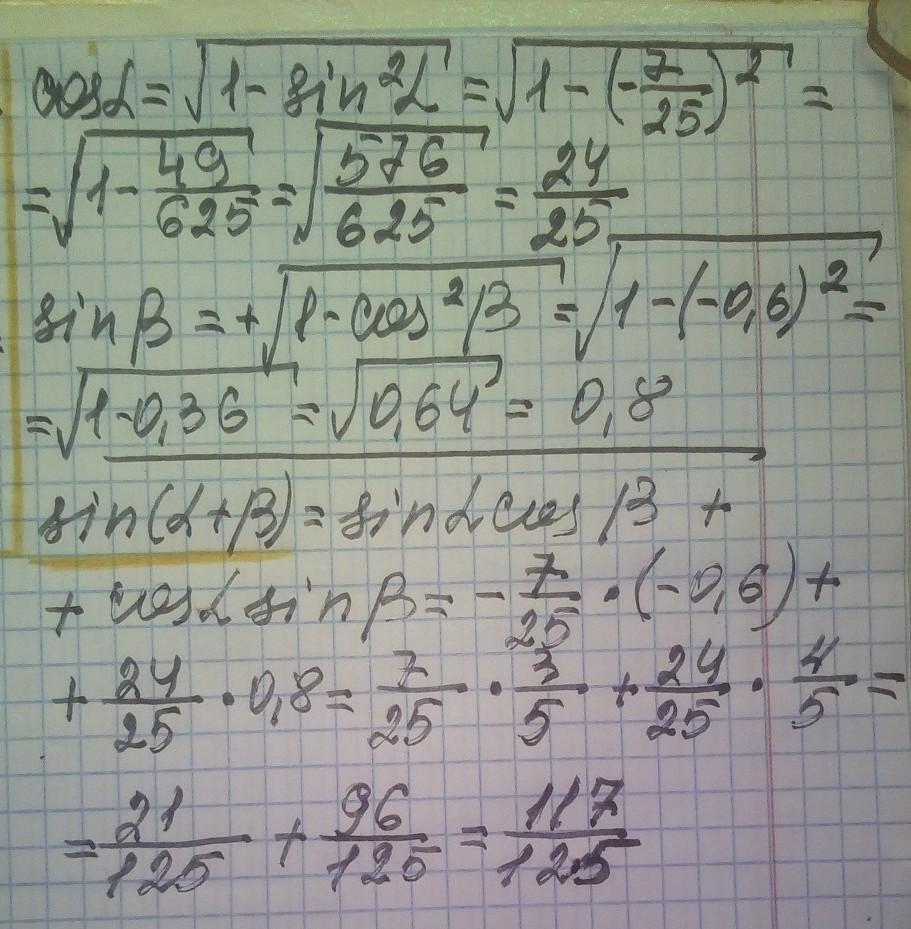 cosα = √(1 - sin²α) = √(1 - (-7/25)²) =
= √(1 - 49/625) = √(576/625) = 24/25
sin β = +√(1 - cos²β) = √(1 - (-0,6)²) =
= √(1 - 0,36) = √(0,64) = 0,8
sin(α+β) = sinα cos β +
+ cosα sin β = - 7/25 · (-0,6) +
+ 24/25 · 0,8 = 7/25 · 3/5 + 24/25 · 4/5 =
= 21/125 + 96/125 = 117/125